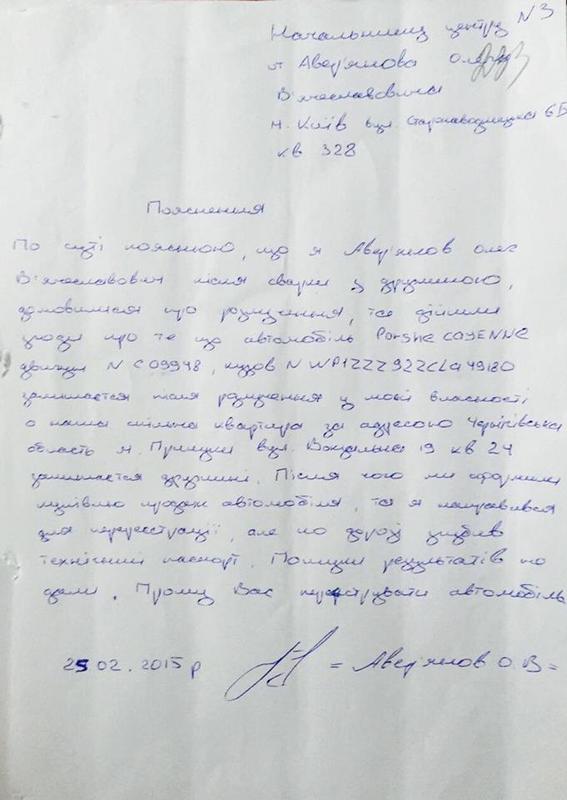 Начальнику центру N 3
от Авер'янова Олега
В'ячеславовича
м. Київ вул. Старонаводницька 6Б
кв 328
Пояснення
По суті пояснюю, що я Авер'янов Олег
В'ячеславович після сварки з дружиною,
домовилися про розлучення, та дійшли
згоди про те що автомобіль Porshe CAYENNE
двигун N C09948, кузов N WP1ZZZ92ZCLA49180
залишается після розлучення у моїй власності
а наша спільна квартира за адресою Чернігівська
область м. Прилуки вул. Вокзальна 19 кв 24
залишается дружині. Після чого ми оформили
купівлю продаж автомобіля, та я направився
для перереєстрації, але по дорозі згубив
технічний паспорт. Пошуки результатів не
дали. Прошу Вас автомобіль
25 02. 2015 р = Авер'янов О. В =